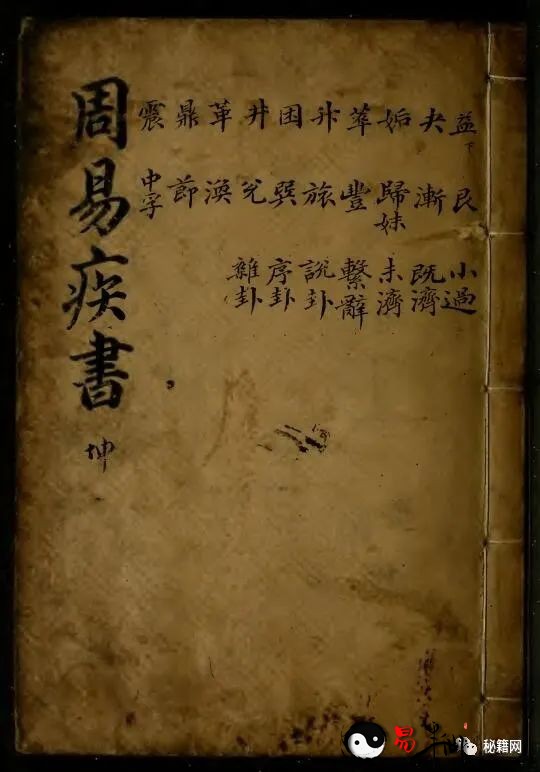 周易疾書
坤
益下 夬 姤 萃 升 困 井 革 鼎 震
艮 漸 歸妹 豐 旅 巽 兌 渙 節 中孚
小過 既濟 未濟 繫辭 說卦 序卦 雜卦
易
秘籍网